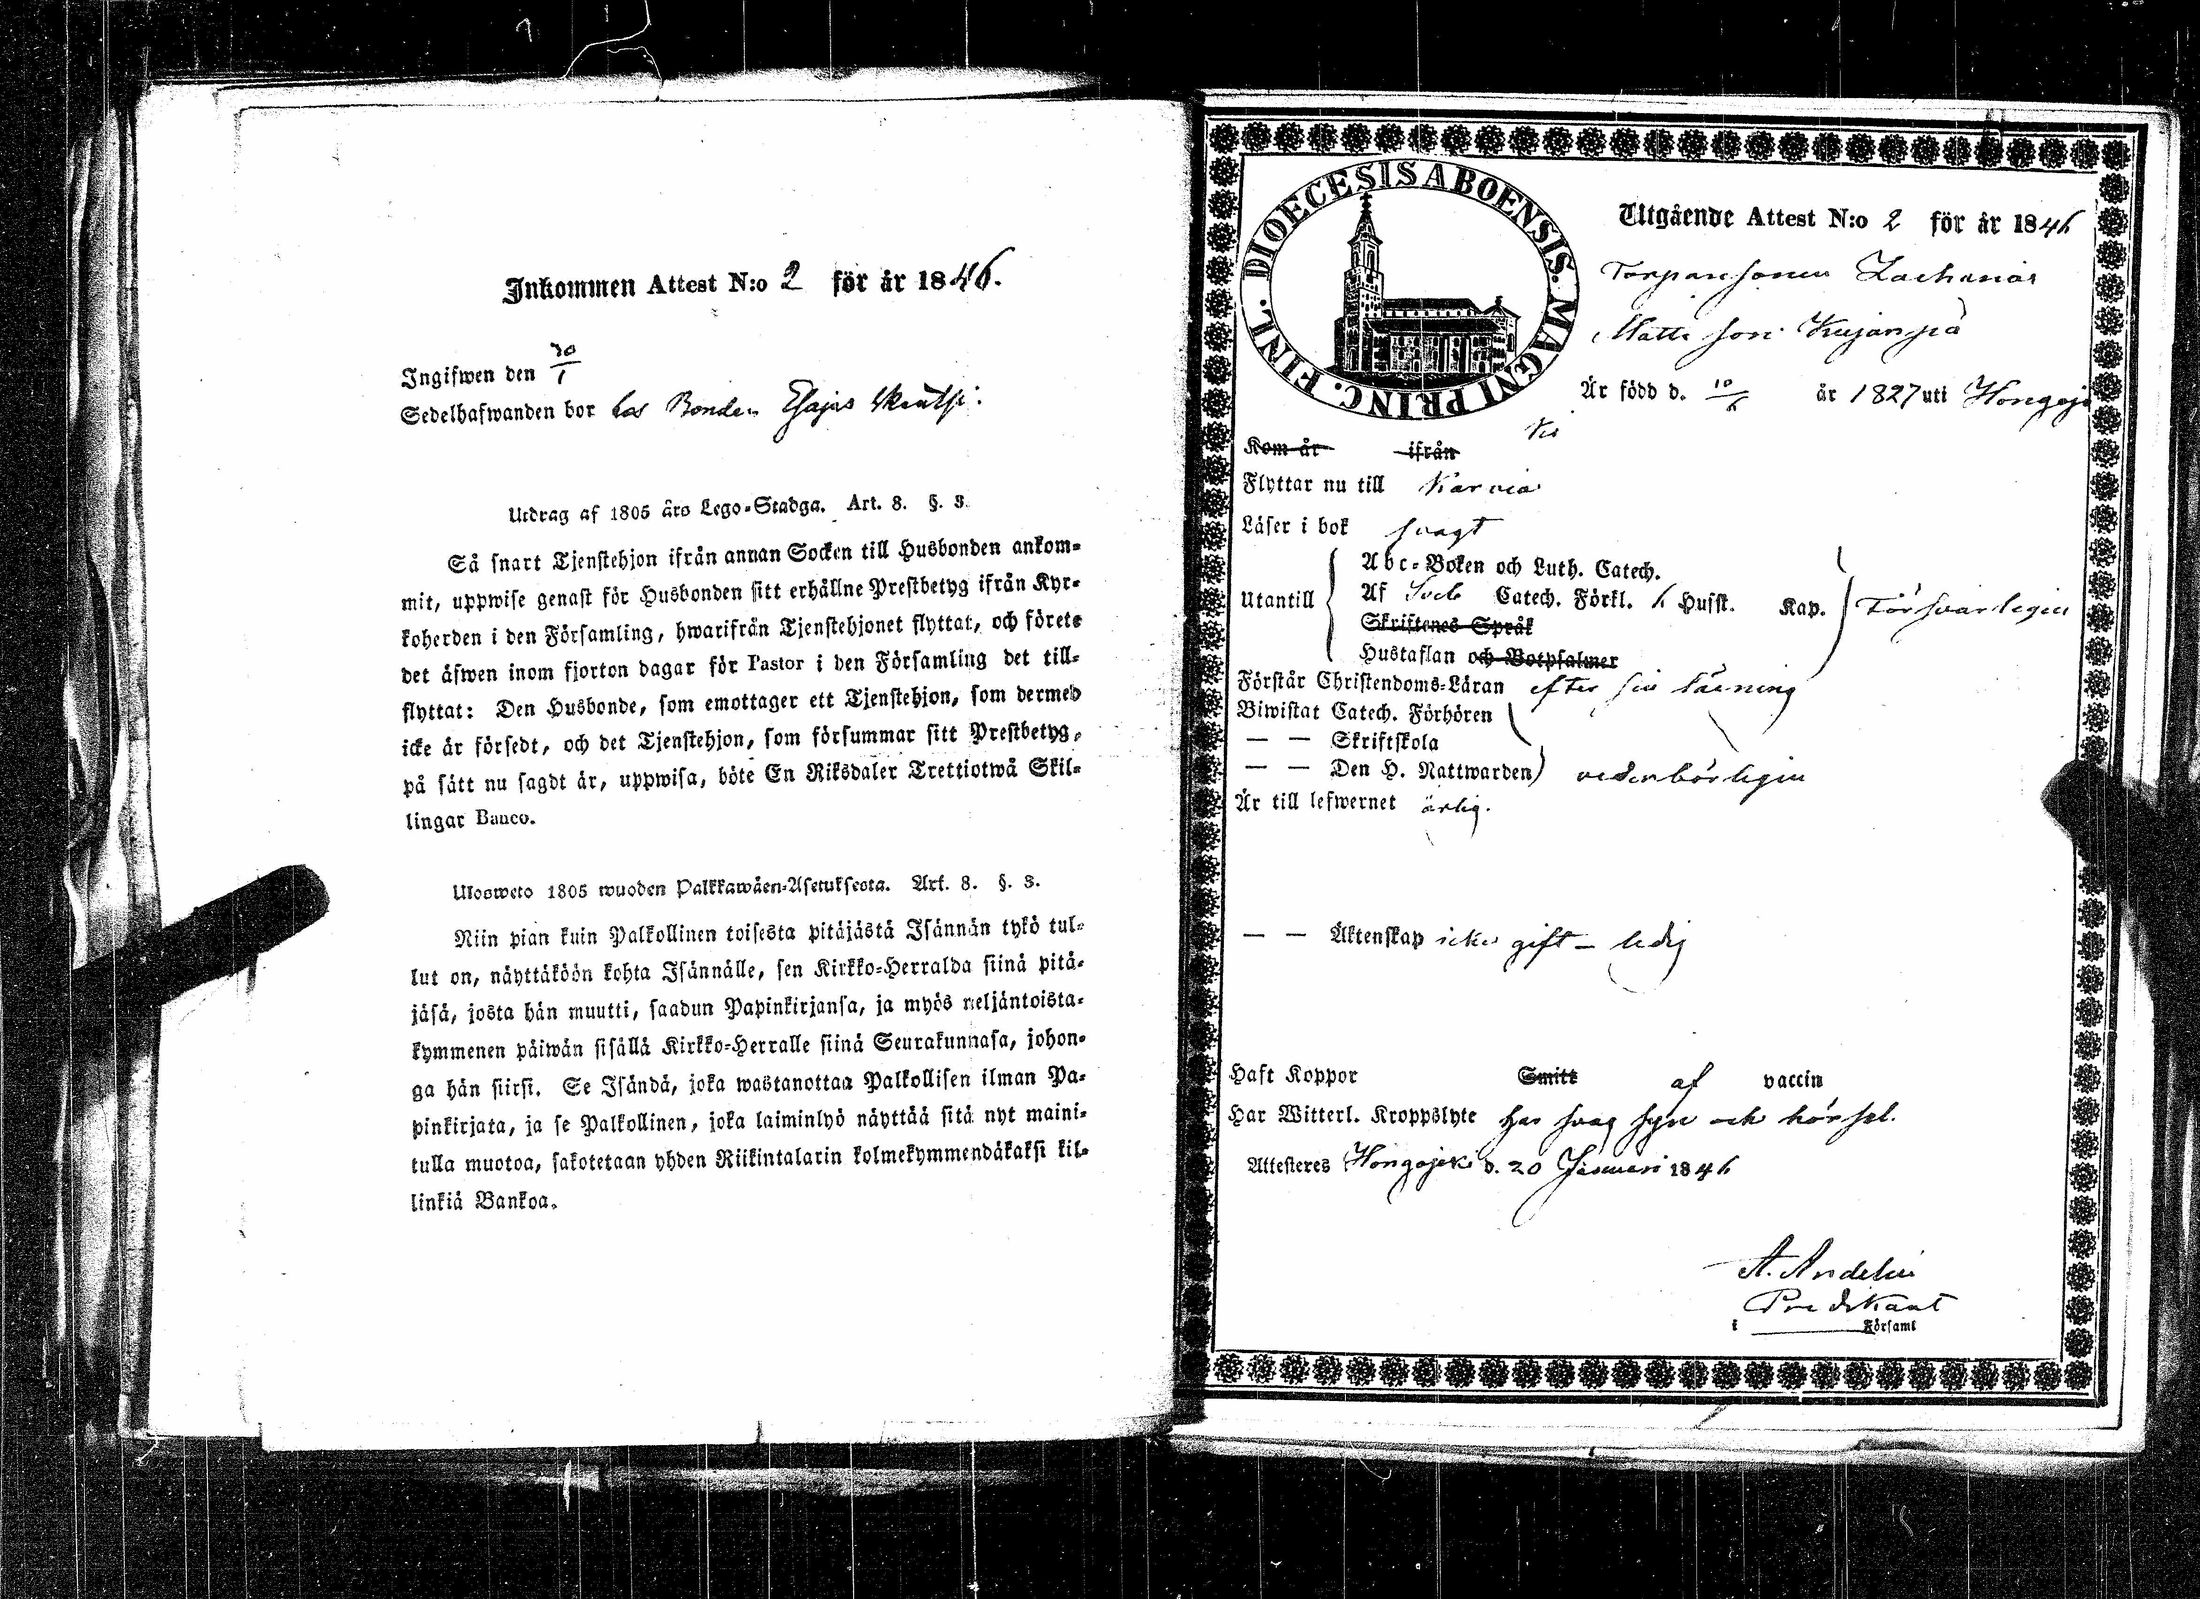 Inkommen Attest N:o 2 för år 1846.
Ingifwen den 30/1
Sedelhafwanden bor hos Bonden Esajas
Utdrag af 1805 års Lego-Stadga. Art. 8. §. 3.
Så snart Tjenstehjon ifrån annan Socken till Husbonden ankom-
mit, uppwise genast för Husbonden sitt erhållne Prestbetyg ifrån Kyr-
koherden i den Församling, hwarifrån Tjenstehjonet flyttat, och förete
det äfwen inom fjorton dagar för Pastor i den Församling det till-
flyttat: Den Husbonde, som emottager ett Tjenstehjon, som dermed
icke är försedt, och det Tjenstehjon, som försummar sitt Prestbetyg,
på sätt nu sagdt är, uppwisa, böte En Riksdaler Trettiotwå Skil-
lingar Banco.
Ulosweto 1805 wuoden Palkkawäen-Asetuksesta. Art. 8. §. 3.
Niin pian kuin Palkollinen toisesta pitäjästä Isännän tykö tul-
lut on, näyttäköön kohta Isännälle, sen Kirkko-Herralda siinä pitä-
jäsä, josta hän muutti, saadun Papinkirjansa, ja myös neljäntoista-
kymmenen päiwän sisällä Kirkko-Herralle siinä Seurakunnasa, johon-
ga hän siirsi. Se Isändä, joka wastanottaa Palkollisen ilman Pa-
pinkirjata, ja se Palkollinen, joka laiminlyö näyttää sitä nyt maini-
tulla muotoa, sakotetaan yhden Riikintalarin kolmekymmendäkaksi kil-
linkiä Bankoa.
DIOECESIS ABOENSIS. MAGNI PRINC. FINL.
Utgående Attest N:o 2 för år 1846
Torparesonen Zacharias
Matts son Kujanpä
Är född d. 10/6 år 1827 uti Hongojo
ki
Kom år ifrån
Flyttar nu till Karvia
Läser i bok svagt
Utantill
Abc-Boken och Luth. Catech.
Af Sveb Catech. Förkl. Husst. Kap. Försvarligen
Skriftenes Språk
Hustaflan och Botpsalmer
Förstår Christendoms-Läran efter sin läsning
Biwistat Catech. Förhören
— — Skriftskola
— — Den H. Nattwarden vederbörligen
Är till lefwernet ärlig.
— — Äktenskap icke gift – ledig
Haft Koppor Smitt af vaccin
Har Witterl. Kroppslyte har svag syn och hörsel.
Attesteres Hongojoki d. 20 Januari 1846
A. Andelin
Predikant
i Församl